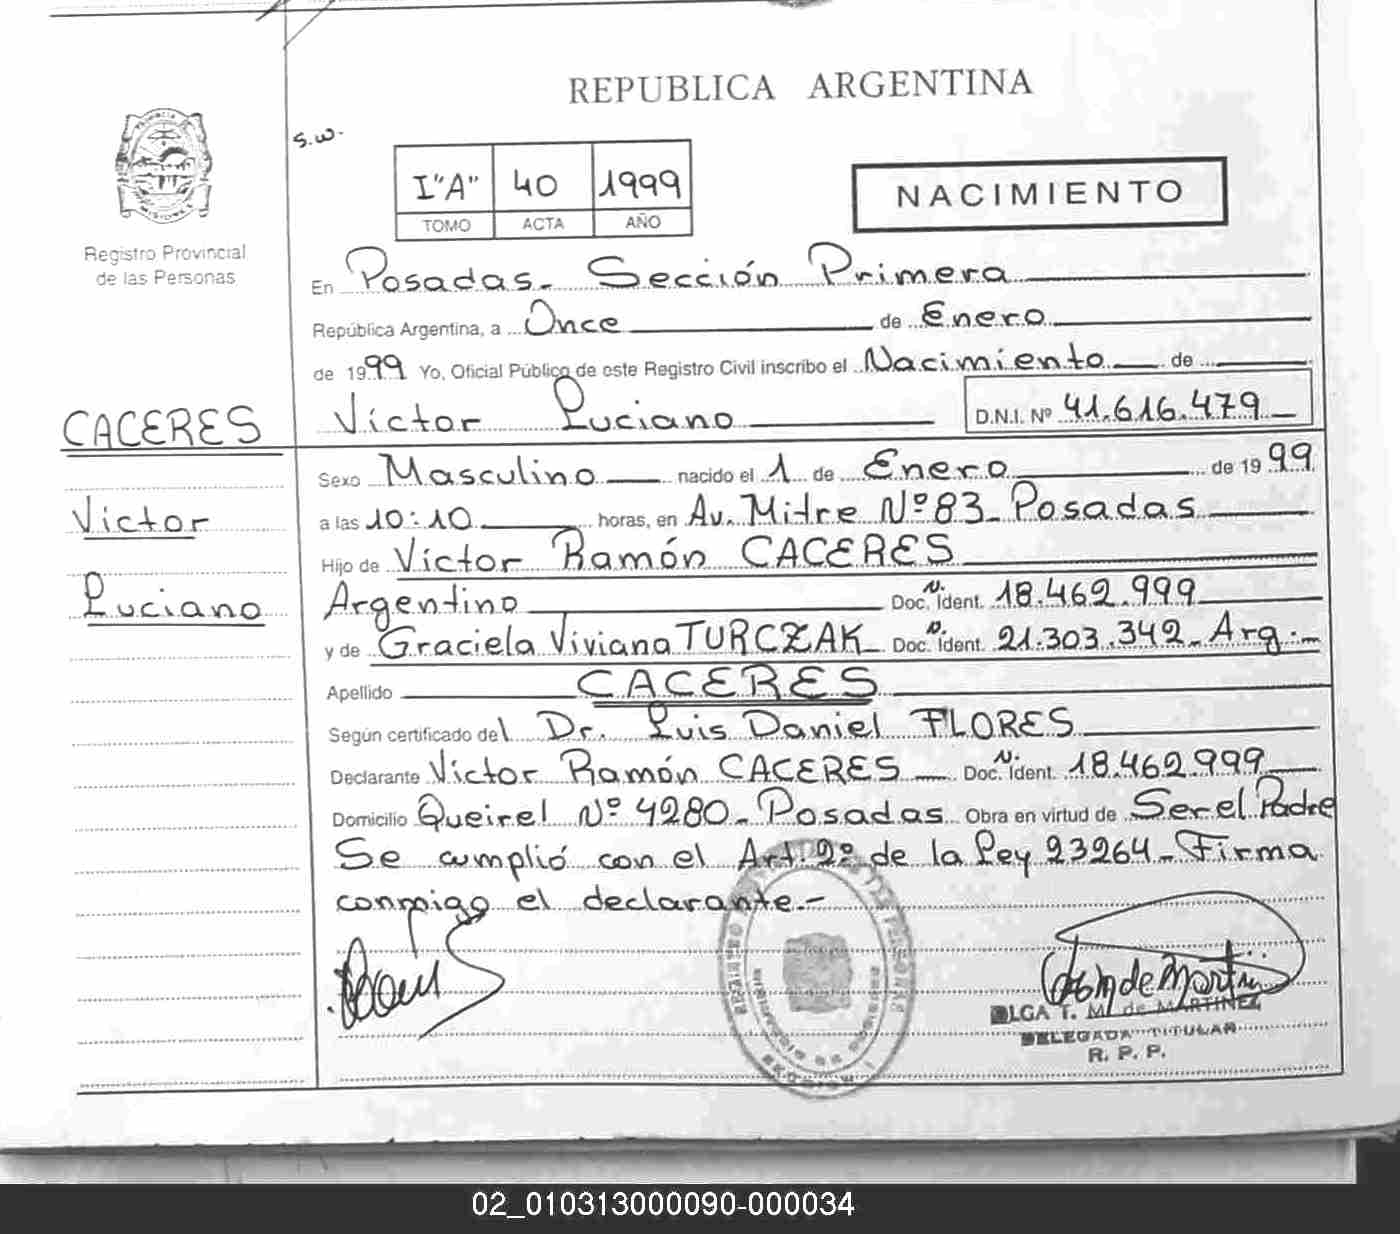 REPUBLICA ARGENTINA
s.w.
I"A" 40 1999
TOMO ACTA AÑO
NACIMIENTO
Registro Provincial
de las Personas
En Posadas. Sección Primera
República Argentina, a Once de Enero
de 1999 Yo, Oficial Público de este Registro Civil inscribo el Nacimiento de
CACERES
Victor Luciano D.N.I. Nº 41.616.479
Sexo Masculino nacido el 1 de Enero de 1999
Victor
a las 10:10 horas, en Av. Mitre Nº 83 - Posadas
Hijo de Victor Ramón CACERES
Luciano
Argentino Doc. N. Ident. 18.462.999
y de Graciela Viviana TURCZAK Doc. N. Ident. 21.303.342 - Arg.-
Apellido CACERES
Según certificado del Dr. Luis Daniel FLORES
Declarante Victor Ramón CACERES Doc. N. Ident. 18.462.999
Domicilio Queirel Nº 4280 - Posadas Obra en virtud de Ser el Padre
Se cumplió con el Art. 2º de la Ley 23264 - Firma
conmigo el declarante.-
OLGA T. M. de MARTINEZ
DELEGADA TITULAR
R. P. P.
02_010313000090-000034